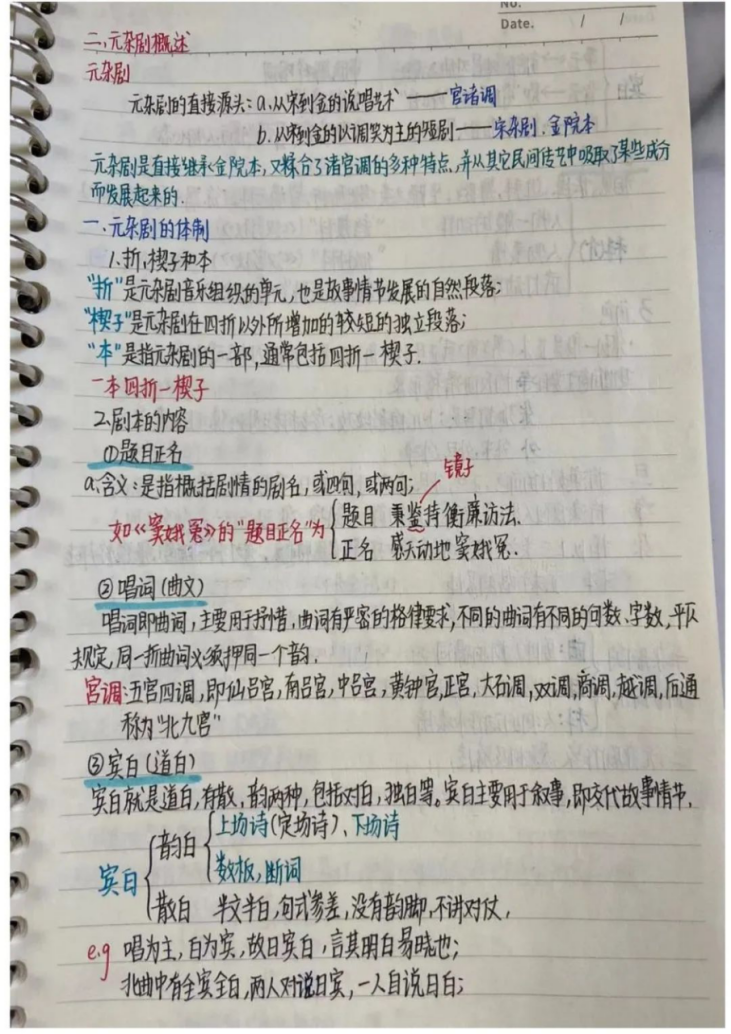 No.
Date. / /
二、元杂剧概述
元杂剧
元杂剧的直接源头:a.从宋到金的说唱艺术——宫诸调
b.从宋到金的以调笑为主的短剧——宋杂剧、金院本
元杂剧是直接继承金院本,又糅合了诸宫调的多种特点,并从其它民间传艺中吸取了某些成分
而发展起来的.
一、元杂剧的体制
1.折,楔子和本
"折"是元杂剧音乐组织的单元,也是故事情节发展的自然段落;
"楔子"是元杂剧在四折以外所增加的较短的独立段落;
"本"是指元杂剧的一部,通常包括四折一楔子.
一本四折一楔子
2.剧本的内容
①题目正名
a.含义:是指概括剧情的剧名,或四句,或两句;
镜子
如《窦娥冤》的"题目正名"为 题目 秉鉴持衡廉访法.
正名 感天动地窦娥冤.
②唱词(曲文)
唱词即曲词,主要用于抒情,曲词有严密的格律要求,不同的曲词有不同的句数、字数,平仄
规定,同一折曲词必须押同一个韵.
宫调:五宫四调,即仙吕宫,南吕宫,中吕宫,黄钟宫,正宫,大石调,双调,商调,越调,后通
称为"北九宫"
③宾白(道白)
宾白就是道白,有散、韵两种,包括对白,独白等。宾白主要用于叙事,即交代故事情节.
宾白 韵白 上场诗(定场诗)、下场诗
数板,断词
散白 半文半白,句式参差,没有韵脚,不讲对仗,
e.g 唱为主,白为宾,故曰宾白,言其明白易晓也;
北曲中有全宾全白,两人对说曰宾,一人自说曰白;